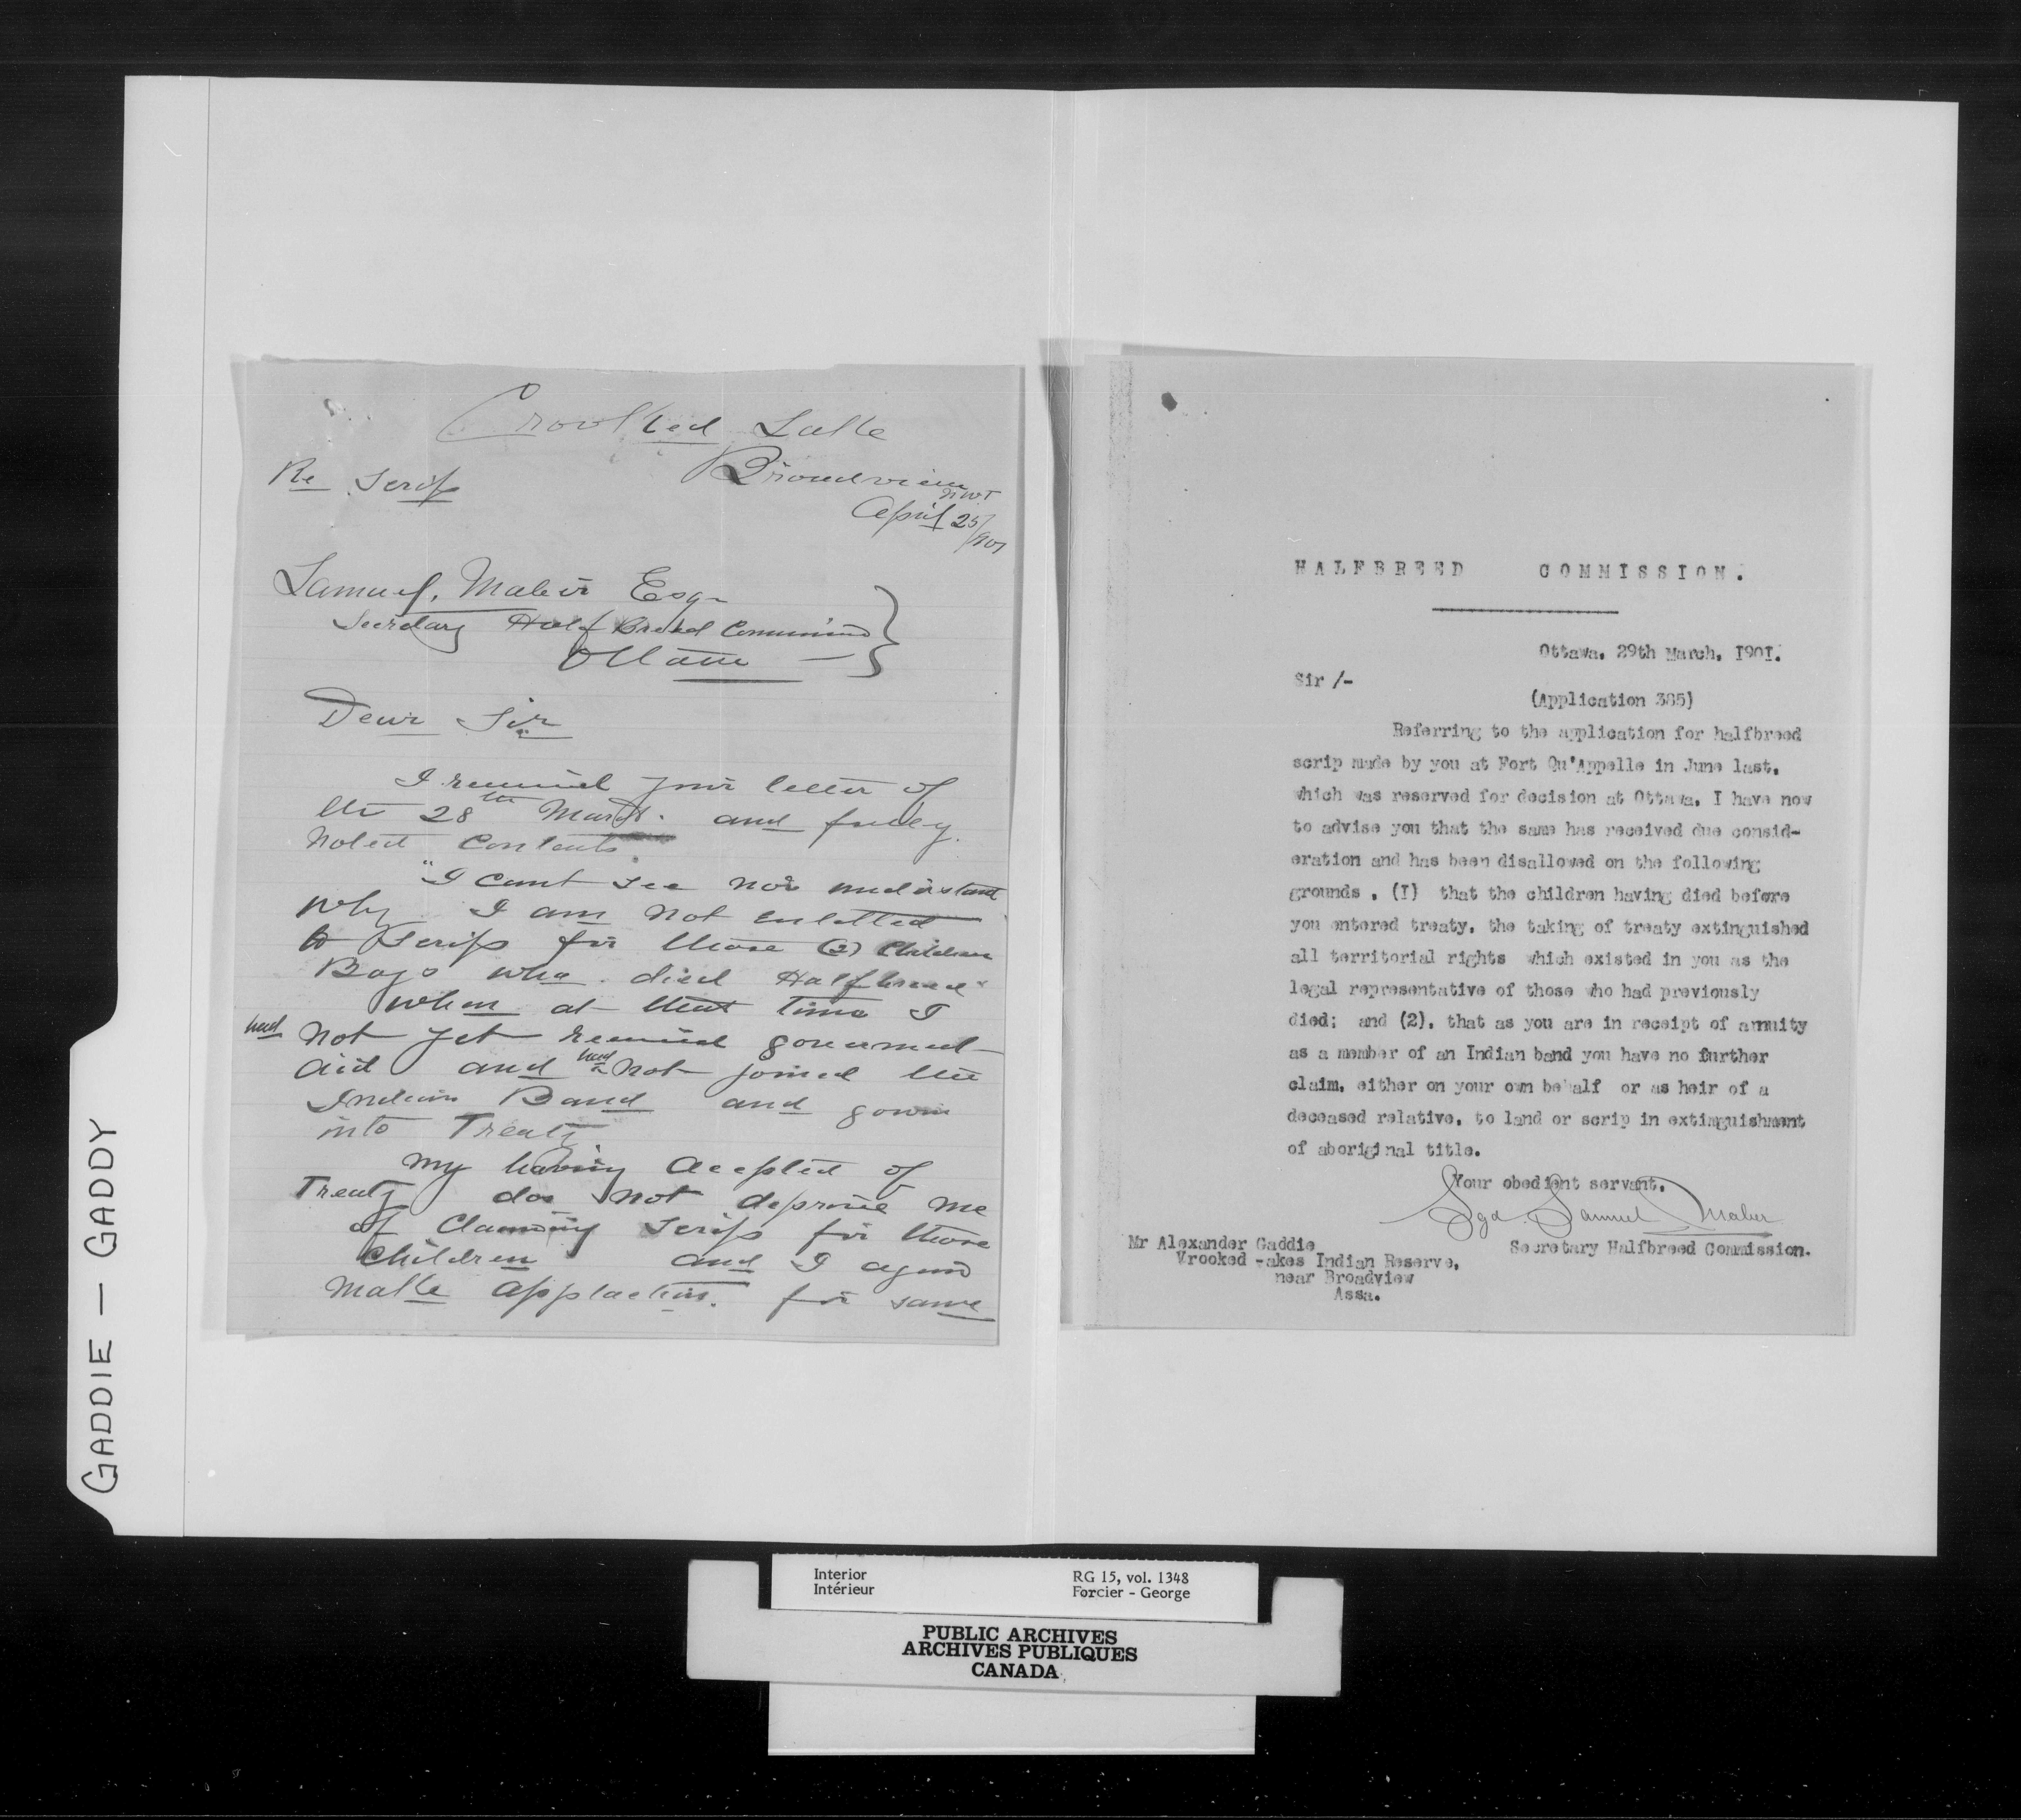 GADDIE — GADDY
Crooked Lake
Broadview
NWT
April 25/901
Re Scrip
Samuel, Maber Esq
Secretary Half Breed Commission
Ottawa
Dear Sir
I received your letter of
the 28th March. and fully
noted contents.
"I cant see nor understand
why I am not entitled
to Scrip for those (2) Children
Boys who died Halfbreed
when at that time I
had not yet received government
aid and had not joined the
Indian Band and gown
into Treaty.
My having accepted of
Treaty dos not deprive me
of Claming scrip for those
Children and I again
make applaction. for same
HALFBREED COMMISSION.
Ottawa. 29th March. I90I.
Sir /-
(Application 385)
Referring to the application for halfbreed
scrip made by you at Fort Qu'Appelle in June last.
which was reserved for decision at Ottawa. I have now
to advise you that the same has received due consid-
eration and has been disallowed on the following
grounds . (I) that the children having died before
you entered treaty. the taking of treaty extinguished
all territorial rights which existed in you as the
legal representative of those who had previously
died; and (2). that as you are in receipt of annuity
as a member of an Indian band you have no further
claim. either on your own behalf or as heir of a
deceased relative. to land or scrip in extinguishment
of aboriginal title.
Your obedient servant.
Sgd. Samuel Maber
Secretary Halfbreed Commission.
Mr Alexander Gaddie
Vrooked -akes Indian Reserve.
near Broadview
Assa.
Interior
Intérieur
RG 15, vol. 1348
Forcier - George
PUBLIC ARCHIVES
ARCHIVES PUBLIQUES
CANADA